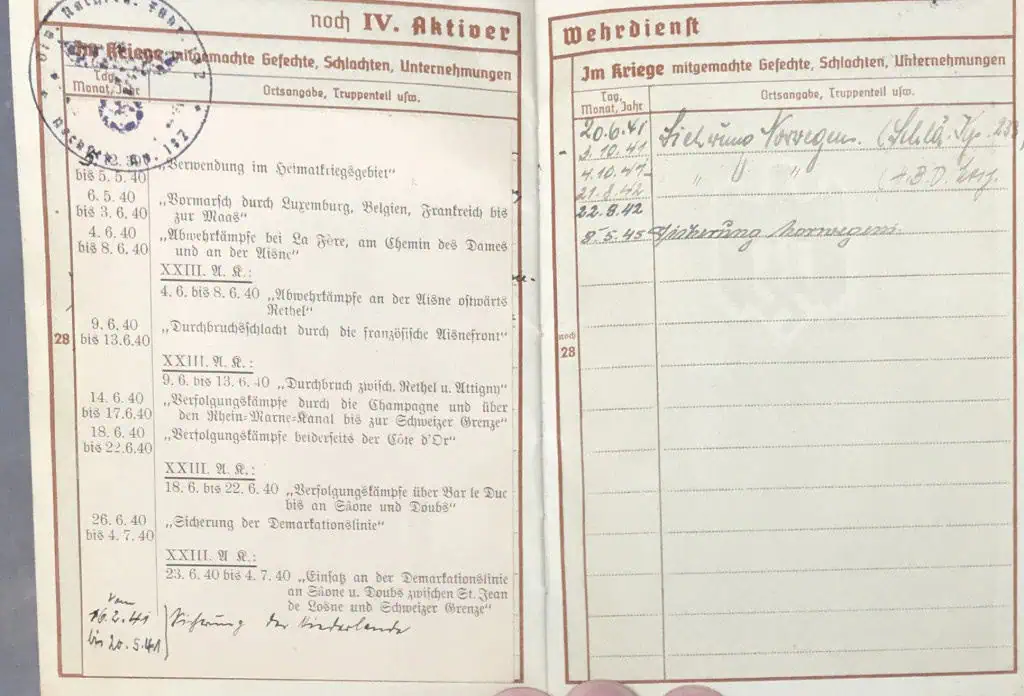 noch IV. Aktiver
Im Kriege mitgemachte Gefechte, Schlachten, Unternehmungen
Tag, Monat, Jahr
Ortsangabe, Truppenteil usw.
bis 5. 5. 40 „Verwendung im Heimatkriegsgebiet"
6. 5. 40 „Vormarsch durch Luxemburg, Belgien, Frankreich bis
bis 3. 6. 40 zur Maas"
4. 6. 40 „Abwehrkämpfe bei La Fère, am Chemin des Dames
bis 8. 6. 40 und an der Aisne"
XXIII. A. K.:
4. 6. bis 8. 6. 40 „Abwehrkämpfe an der Aisne ostwärts
Rethel"
9. 6. 40 „Durchbruchsschlacht durch die französische Aisnefront"
28 bis 13.6.40
XXIII. A. K.:
9. 6. bis 13. 6. 40 „Durchbruch zwisch. Rethel u. Attigny"
14. 6. 40 „Verfolgungskämpfe durch die Champagne und über
bis 17.6.40 den Rhein=Marne=Kanal bis zur Schweizer Grenze"
18. 6. 40 „Verfolgungskämpfe beiderseits der Côte d'Or"
bis 22.6.40
XXIII. A. K.:
18. 6. bis 22. 6. 40 „Verfolgungskämpfe über Bar le Duc
bis an Sâone und Doubs"
26. 6. 40 „Sicherung der Demarkationslinie"
bis 4. 7. 40
XXIII. A K.:
23. 6. 40 bis 4. 7. 40 „Einsatz an der Demarkationslinie
an Sâone u. Doubs zwischen St. Jean
de Losne und Schweizer Grenze"
von
16.2.41 Sicherung der Niederlande
bis 20.5.41
Wehrdienst
Im Kriege mitgemachte Gefechte, Schlachten, Unternehmungen
Tag, Monat, Jahr
Ortsangabe, Truppenteil usw.
20.6.41 Sicherung Norwegen.
3.10.41
4.10.41- " " "
21.8.42
22.8.42
8.5.45 Sicherung Norwegens.
noch
28